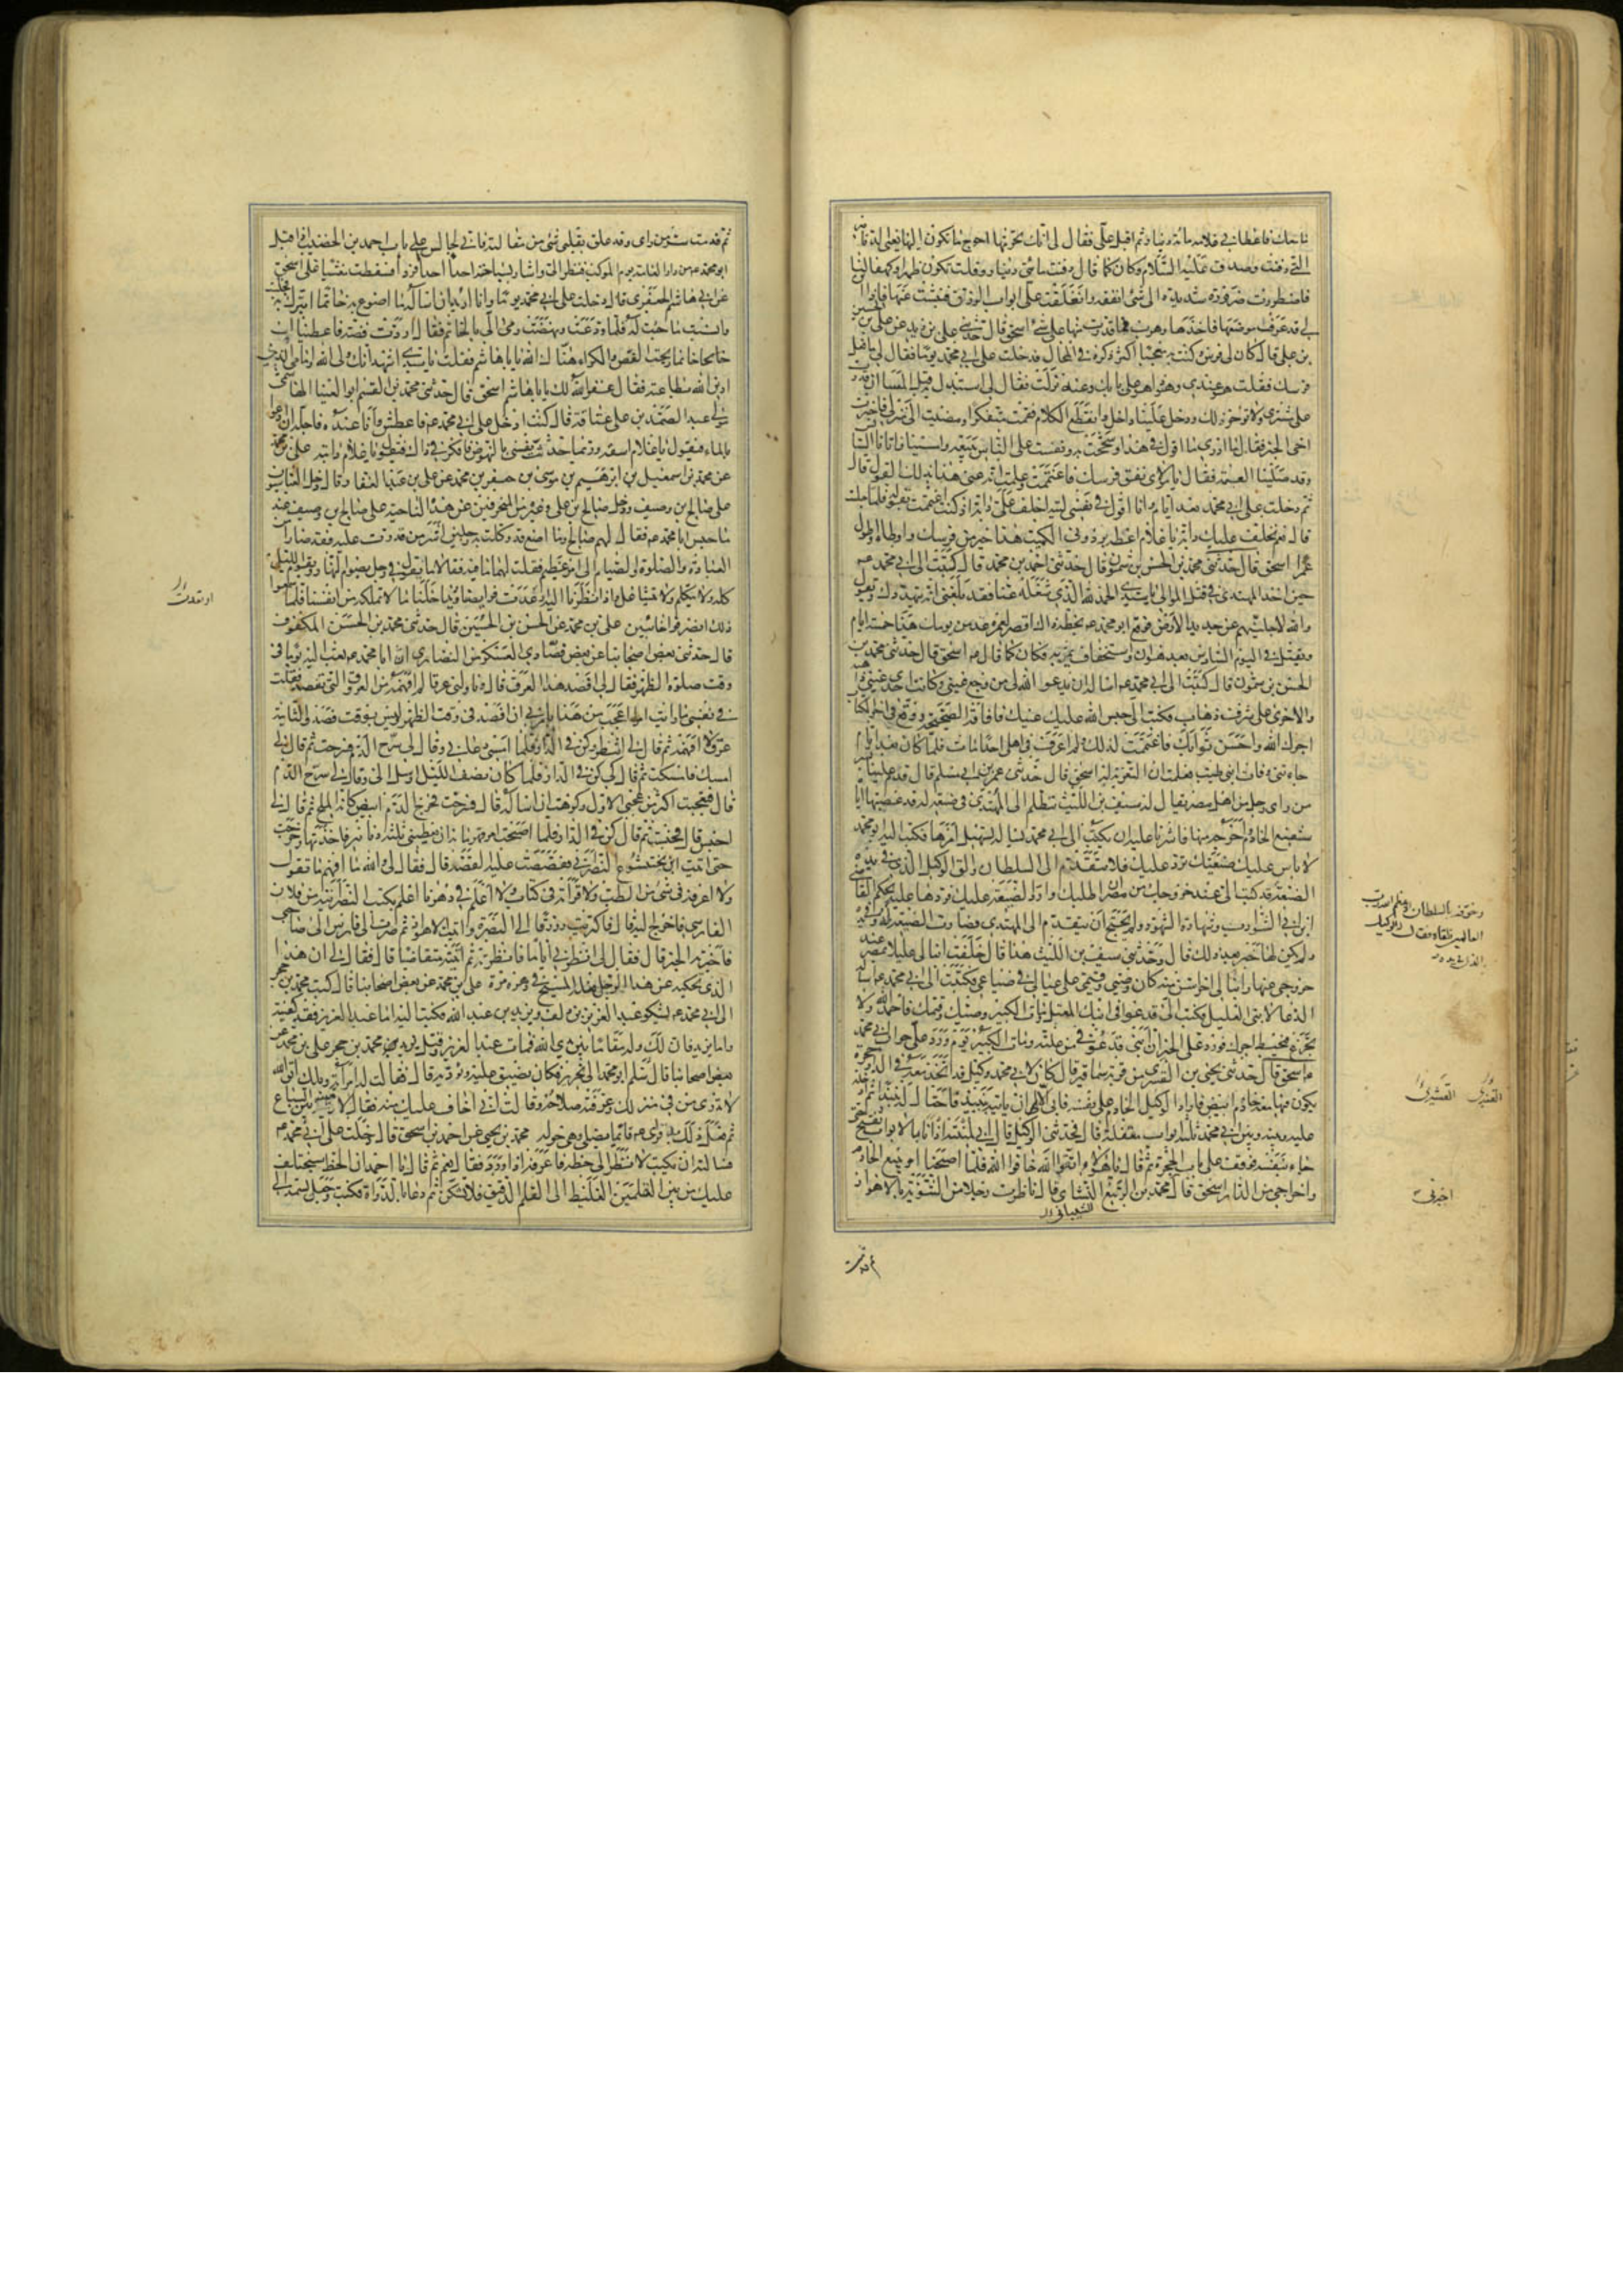 ما معك فاعطاني غلامه مائة دينار ثم اقبل علّي فقال لي انك تحرمها احوج ما تكون اليها يعني الدنانير
التي دفنت وصدق عليه السلام وكان كما قال دفنت مائتي دينار وقلت تكون ظهرا وكهفا لنا
فاضطررت ضرورة شديدة الى شئ انفقه وانغلقت علي ابواب الرزق فنبشت عنها فاذا ابن
لي قد عرف موضعها فاخذها وهرب فما قدرت منها على شئ اسحق قال حدثني علي بن زيد بن علي بن الحسين
بن علي قال كان لي فرس وكنت به معجبا اكثر ذكره في المحال فدخلت على ابي محمد يوما فقال لي ما فعل
فرسك فقلت هو عندي وهو هو على بابك وعنه نزلت فقال لي استبدل به قبل المساء ان قدرت
على مشتري ولا تؤخر ذلك ودخل علينا داخل وانقطع الكلام فقمت متفكرا ومضيت الى منزلي فاخبرت
اخي الخبر فقال ما ادري ما اقول في هذا وشححت به ونفست على الناس ببيعه وامسينا فاتانا السائس
وقد صلينا العتمة فقال يا مولاي نفق فرسك فاغتممت وعلمت انه عنى هذا بذلك القول قال
ثم دخلت على ابي محمد بعد ايام وانا اقول في نفسي ليته اخلف علّي دابة اذ كنت اغتممت بقوله فلما جلست
قال نعم نخلف عليك دابة يا غلام اعطه برذوني الكميت هذا خير من فرسك واوطأ واطول
عمرا اسحق قال حدثني محمد بن الحسن بن شمون قال حدثني احمد بن محمد قال كتبت الى ابي محمد ع
حين اخذ المهتدي في قتل الموالي يا سيدي الحمد لله الذي شغله عنا فقد بلغني انه يتهددك ويقول
والله لاجلينهم عن جديد الارض فوقع ابو محمد ع بخطه ذاك اقصر لعمره عد من يومك هذا خمسة ايام
ويقتل في اليوم السادس بعد هوان واستخفاف يمر به فكان كما قال ع اسحق قال حدثني محمد بن
الحسن بن شمون قال كتبت الى ابي محمد ع اساله ان يدعو الله لي من وجع عيني وكانت احدى عيني ذاهبة
والاخرى على شرف ذهاب فكتب الي حبس الله عليك عينك فافاقت الصحيحة ووقع في آخر الكتاب
اجرك الله واحسن ثوابك فاغتممت لذلك ولم اعرف في اهلي احدا مات فلما كان بعد ايام
جاءتني وفاة ابني طيب فعلمت ان التعزية له اسحق قال حدثني عمر بن ابي مسلم قال قدم علينا بسر
من راى رجل من اهل مصر يقال له سيف بن الليث يتظلم الى المهتدي في ضيعة له قد غصبها اياه
شفيع الخادم واخرجه منها فاشرنا عليه ان يكتب الى ابي محمد يساله تسهيل امرها فكتب اليه ابو محمد
لا باس عليك ضيعتك ترد عليك فلا تتقدم الى السلطان والق الوكيل الذي في يده
الضيعة قد كتب الي عند خروجك من مصر ان اطلبك وارد الضيعة عليك فردها عليه بحكم القاضي
ابن ابي الشوارب وشهادة الشهود ولم يحتج ان يتقدم الى المهتدي فصارت الضيعة له وفي يده
ولم يكن لها خبر بعد ذلك قال وحدثني سيف بن الليث هذا قال خلفت ابنا لي عليلا بمصر عند
خروجي عنها وابنا لي اخر اسن منه كان وصيي وقيمي على عيالي في ضياعي فكتبت الى ابي محمد ع اساله
الدعاء لابني العليل فكتب الي قد عوفي ابنك المعتل ومات الكبير وصيك وقيمك فاحمد الله ولا
تجزع فيحبط اجرك فورد علّي الخبر ان ابني قد عوفي من علته ومات الكبير يوم ورد علّي جواب ابي محمد
ع اسحق قال حدثني يحيى بن القسري من قرية سما قير قال كان لابي محمد وكيل قد اتخذ معه في الدار حجرة
يكون فيها معه خادم ابيض فاراد الوكيل الخادم على نفسه فابى الا ان ياتيه بنبيذ فاحتال له نبيذا ثم ادخله
عليه وبينه وبين ابي محمد ثلثة ابواب مقفلة قال فحدثني الوكيل قال اني لمنتبه اذ انا بالابواب تفتح حتى
جاء بنفسه فوقف على باب الحجرة ثم قال يا هؤلاء اتقوا الله خافوا الله فلما اصبحنا امر ببيع الخادم
واخراجي من الدار اسحق قال محمد بن الربيع النشائي قال ناظرت رجلا من الثنوية بالاهواز
الشيباني
ثم قدمت
القنبري القشيري
اخبرني
ثم قدمت سر من راى وقد علق بقلبي شئ من مقالته فاني لجالس على باب احمد بن الخضيب اذ اقبل
ابو محمد ع من دار العامة يوم الموكب فنظر الي واشار بسباحته احدا احدا فردا فسقطت مغشيا علي اسحق
عن ابي هاشم الجعفري قال دخلت على ابي محمد يوما وانا اريد ان اساله ما اصوغ به خاتما اتبرك به فجلست
وانسيت ما جئت له فلما ودعت ونهضت رمى الي بالخاتم فقال اردت فضة فاعطيناك
خاتما ربحت الفص والكراء هناك الله يا ابا هاشم فقلت يا سيدي اشهد انك ولي الله وامامي الذي
ادين الله بطاعته فقال غفر الله لك يا ابا هاشم اسحق قال حدثني محمد بن القسم ابو العيناء الهاشمي
مولى عبد الصمد بن علي عتاقة قال كنت ادخل على ابي محمد ع فاعطش وانا عنده فاجله ان ادعو
بالماء فيقول يا غلام اسقه وربما حدثت نفسي بالنهوض فافكر في ذلك فيقول يا غلام دابته علي بن محمد
عن محمد بن اسمعيل بن ابرهيم بن موسى بن جعفر بن محمد عن علي بن عبد الغفار قال دخل العباسيون
على صالح بن وصيف ودخل صالح بن علي وغيره من المنحرفين عن هذه الناحية على صالح بن وصيف عند
ما حبس ابا محمد ع فقال لهم صالح وما اصنع قد وكلت به رجلين اشر من قدرت عليه فقد صارا من
العبادة والصلوة والصيام الى امر عظيم فقلت لهما ما فيه فقالا ما تقول في رجل يصوم النهار ويقوم الليل
كله ولا يتكلم ولا يتشاغل واذا نظرنا اليه ارعدت فرايصنا ويداخلنا ما لا نملكه من انفسنا فلما سمعوا
ذلك انصرفوا خائبين علي بن محمد عن الحسن بن الحسين قال حدثني محمد بن الحسن المكفوف
قال حدثني بعض اصحابنا عن بعض فصادي العسكر من النصارى ان ابا محمد ع بعث اليه يوما في
وقت صلوة الظهر فقال لي افصد هذا العرق قال وناولني عرقا لم افهمه من العروق التي تفصد فقلت
في نفسي ما رايت امرا اعجب من هذا يامرني ان افصد في وقت الظهر وليس بوقت فصد والثانية
عرق لا افهمه ثم قال لي انتظر وكن في الدار فلما امسى دعاني وقال لي سرح الدم فسرحت ثم قال لي
امسك فامسكت ثم قال لي كن في الدار فلما كان نصف الليل ارسل الي وقال لي سرح الدم
قال فتعجبت اكثر من عجبي الاول وكرهت ان اساله قال فسرحت فخرج الدم ابيض كانه الملح ثم قال لي
احبس قال فحبست ثم قال كن في الدار فلما اصبحت امر قهرمانه ان يعطيني ثلثة دنانير فاخذتها وخرجت
حتى اتيت ابن بختيشوع النصراني فقصصت عليه القصة قال فقال لي والله ما افهم ما تقول
ولا اعرفه في شئ من الطب ولا قراته في كتاب ولا اعلم في دهرنا اعلم بكتب النصرانية من فلان
الفارسي فاخرج اليه قال فاكتريت زورقا الى البصرة واتيت الاهواز ثم صرت الى فارس الى صاحبي
فاخبرته الخبر قال فقال لي انظرني اياما فانظرته ثم اتيته متقاضيا قال فقال لي ان هذا
الذي تحكيه عن هذا الرجل فعله المسيح في دهره مرة علي بن محمد عن بعض اصحابنا قال كتب محمد بن حجر
الى ابي محمد ع يشكو عبد العزيز بن دلف ويزيد بن عبد الله فكتب اليه اما عبد العزيز فقد كفيته
واما يزيد فان لك وله مقاما بين يدي الله فمات عبد العزيز وقتل يزيد محمد بن حجر علي بن محمد عن
بعض اصحابنا قال سلم ابو محمد الى نحرير فكان يضيق عليه ويؤذيه قال فقالت له امراته ويلك اتق الله
لا تدري من في منزلك وعرفته صلاحه وقالت اني اخاف عليك منه فقال لارمينه بين السباع
ثم فعل ذلك به فرئي ع قائما يصلي وهي حوله محمد بن يحيى عن احمد بن اسحق قال دخلت على ابي محمد ع
فسالته ان يكتب لانظر الى خطه فاعرفه اذا ورد فقال نعم ثم قال يا احمد ان الخط سيختلف
عليك من بين القلم الغليظ الى القلم الدقيق فلا تشكن ثم دعا بالدواة فكتب وجعل يستمد الى
ارعدت